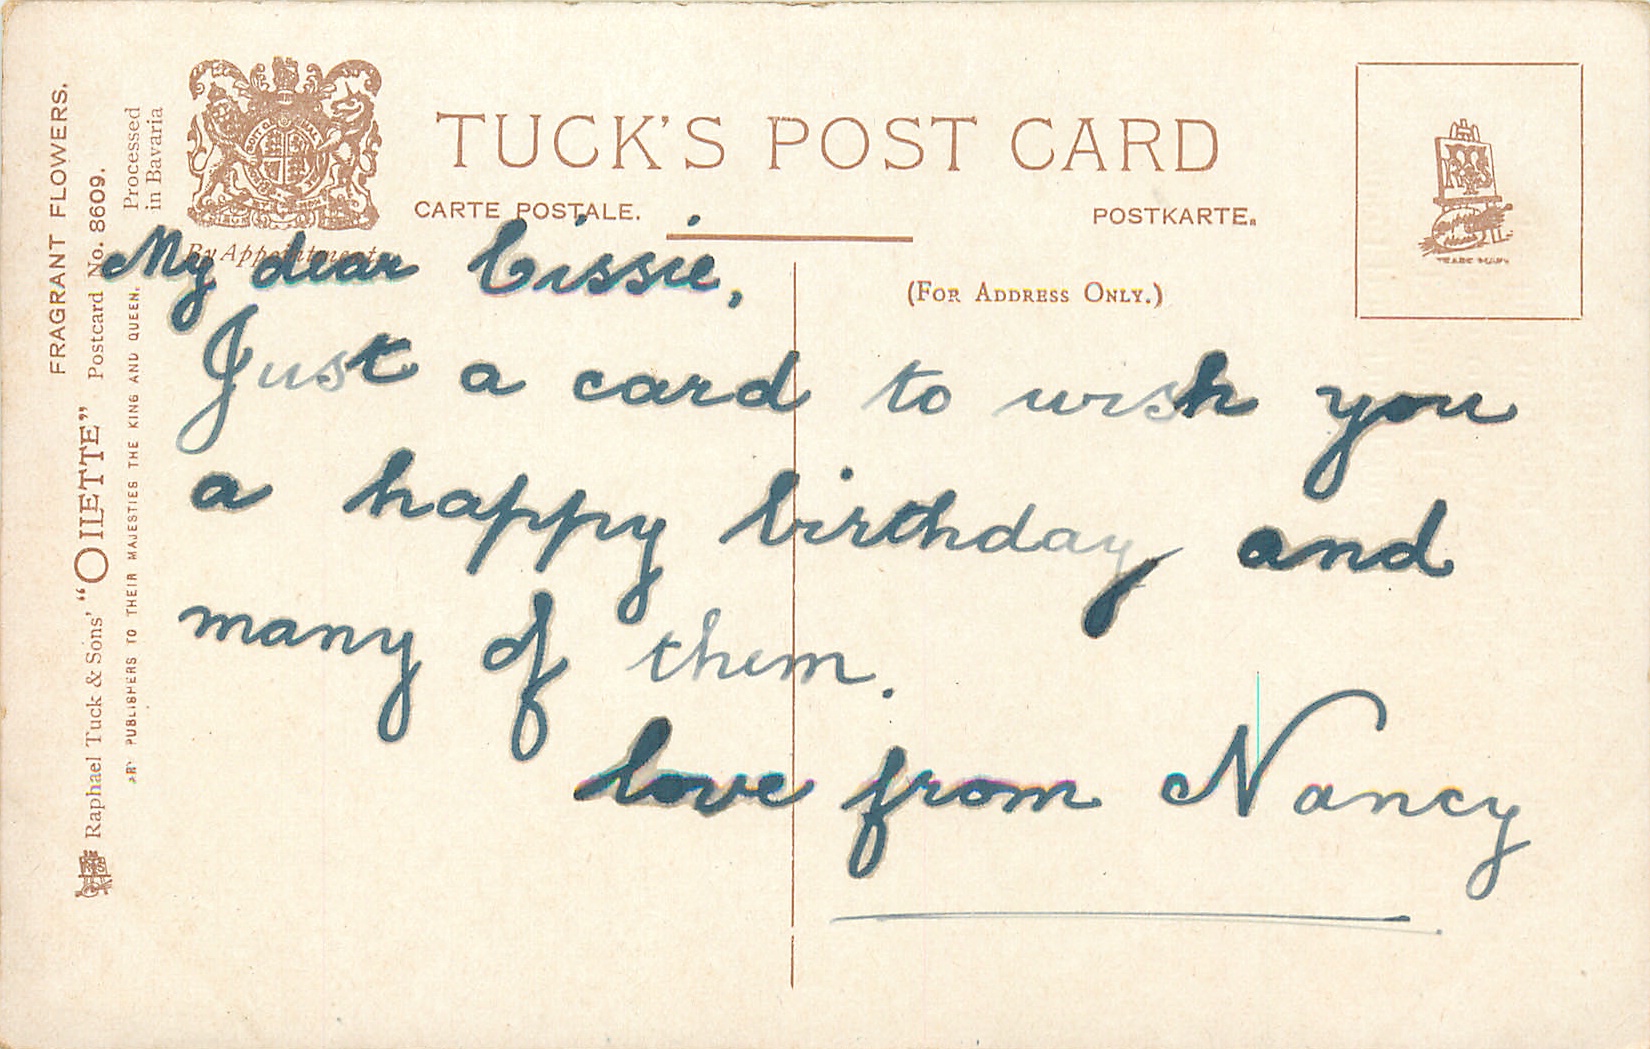 FRAGRANT FLOWERS.
Raphael Tuck & Sons' "OILETTE" Postcard No. 8609.
PUBLISHERS TO THEIR MAJESTIES THE KING AND QUEEN.
Processed
in Bavaria
By Appointment
TUCK'S POST CARD
CARTE POSTALE.
POSTKARTE.
(FOR ADDRESS ONLY.)
TRADE MARK
My dear Cissie,
Just a card to wish you
a happy birthday and
many of them.
love from Nancy